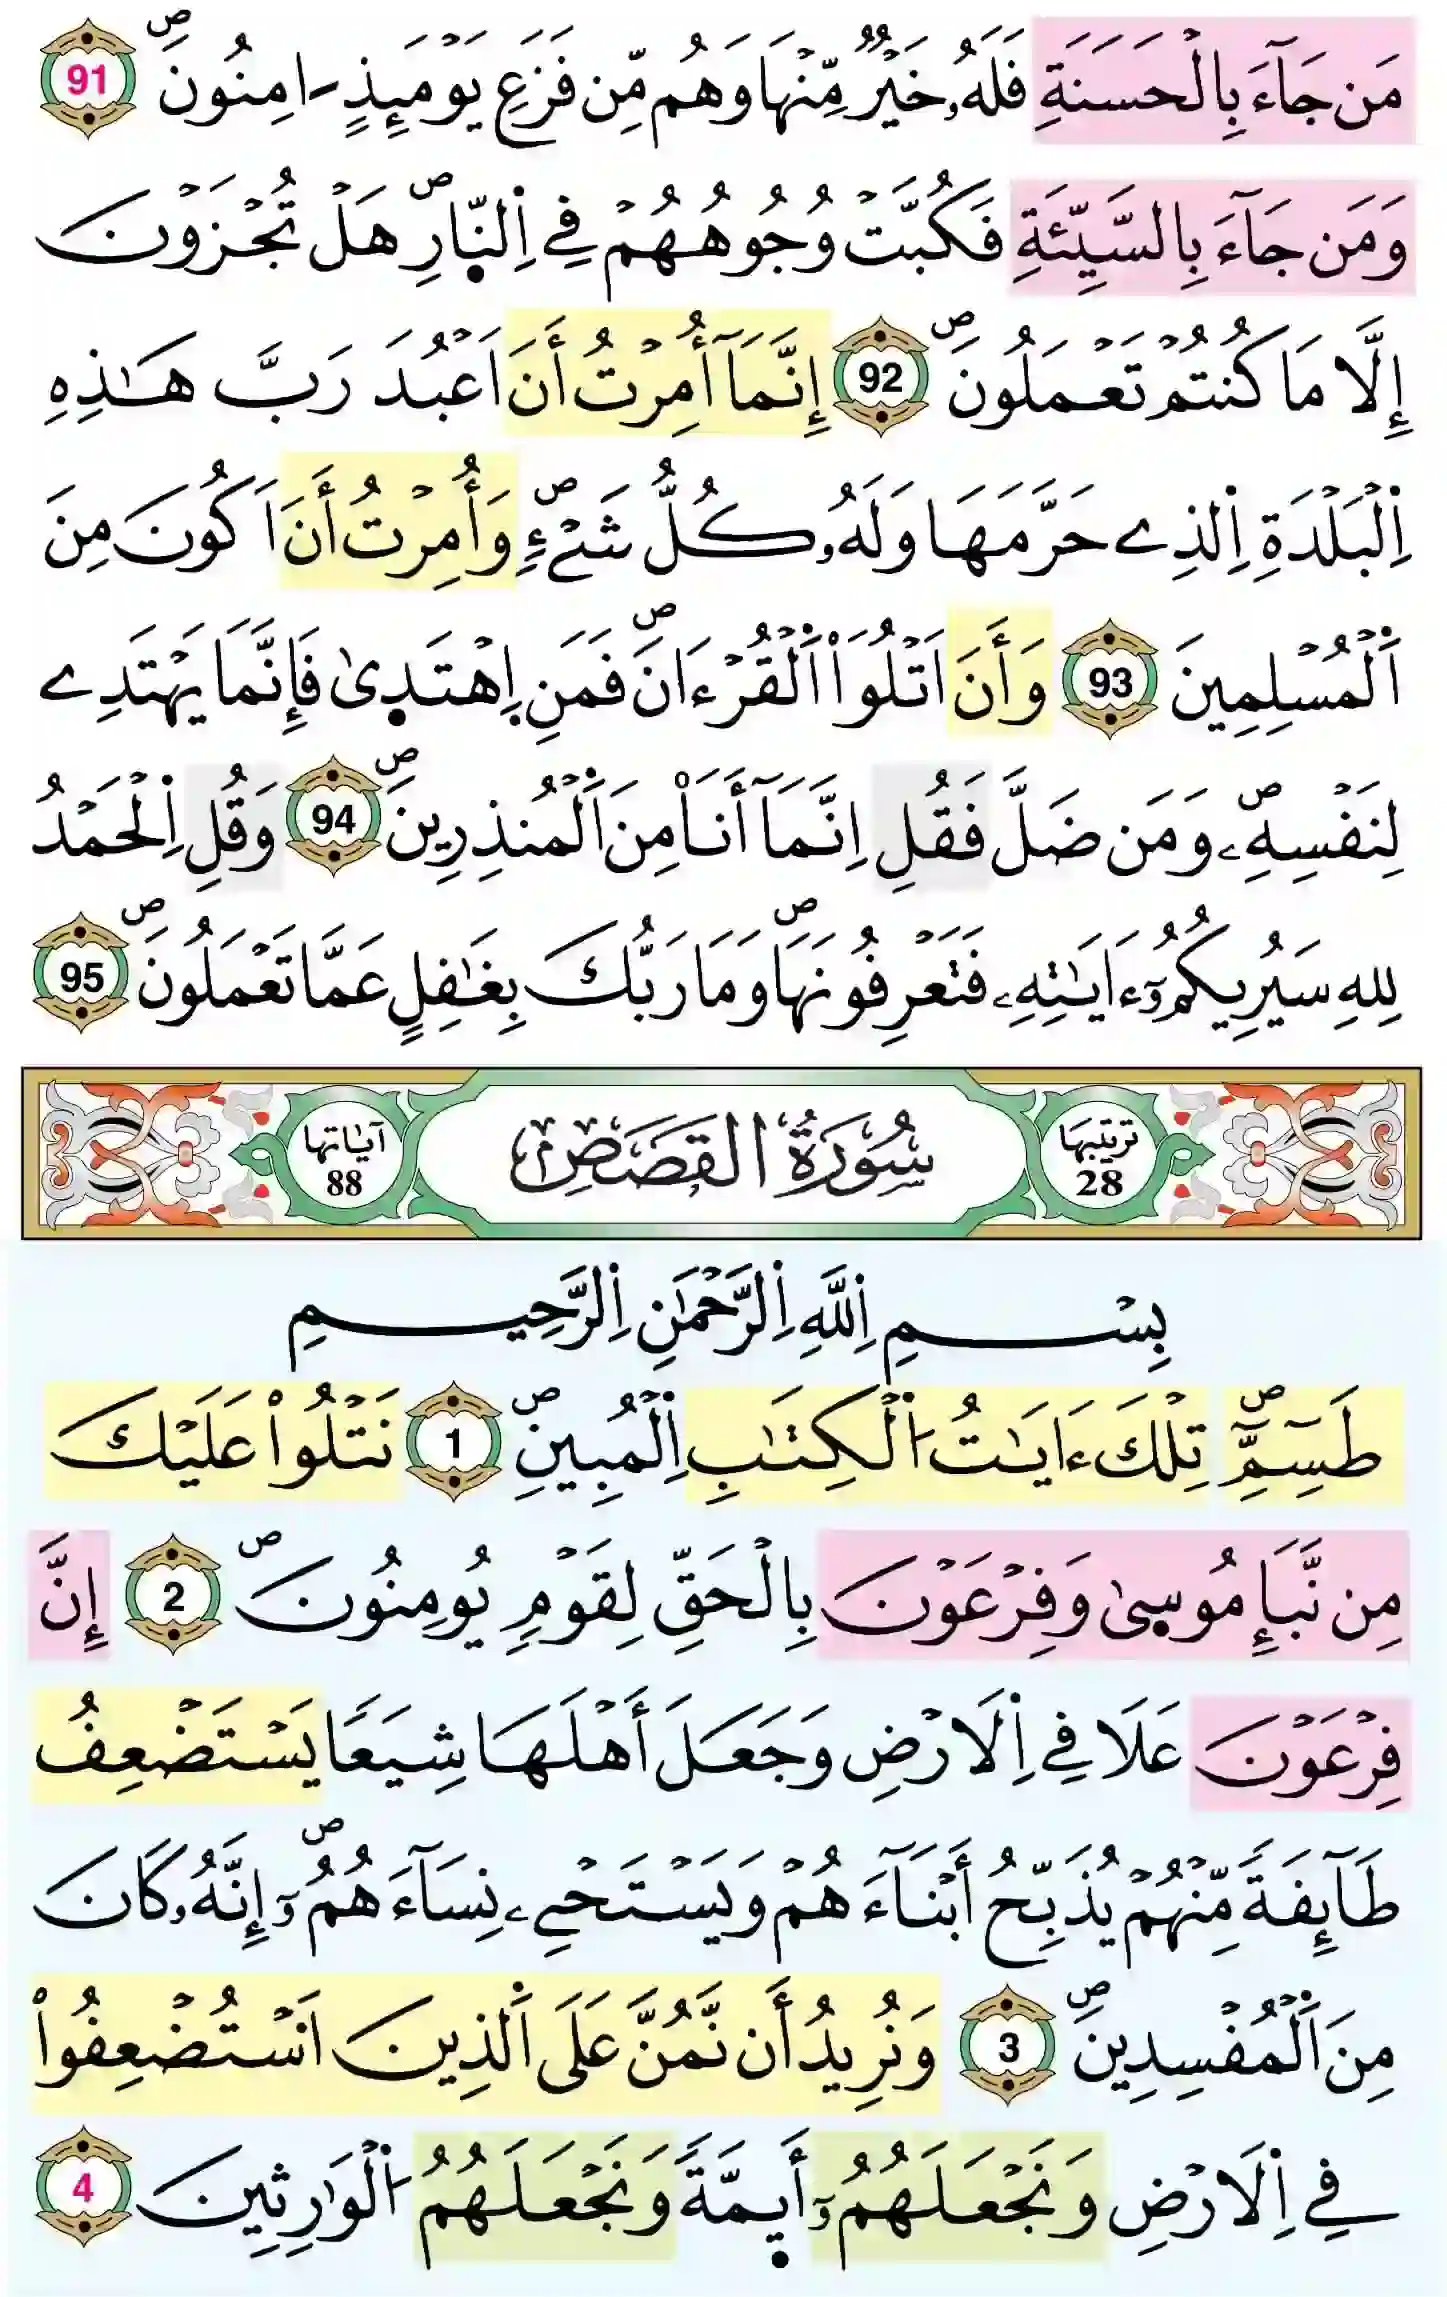 مَن جَآءَ بِالْحَسَنَةِ فَلَهُۥ خَيْرٞ مِّنْهَا وَهُم مِّن فَزَعِ يَوْمَئِذٍ ـَامِنُونَۖ 91
وَمَن جَآءَ بِالسَّيِّئَةِ فَكُبَّتْ وُجُوهُهُمْ فِے اِ۬لنّ۪ارِۖ هَلْ تُجْزَوْنَ
إِلَّا مَا كُنتُمْ تَعْمَلُونَۖ 92 إِنَّمَآ أُمِرْتُ أَنَ اَعْبُدَ رَبَّ هَٰذِهِ
اِ۬لْبَلْدَةِ اِ۬لذِے حَرَّمَهَا وَلَهُۥ كُلُّ شَےْءٖۖ وَأُمِرْتُ أَنَ اَكُونَ مِنَ
اَ۬لْمُسْلِمِينَ 93 وَأَنَ اَتْلُوَاْ اَ۬لْقُرْءَانَۖ فَمَنِ اِ۪هْتَد۪ىٰ فَإِنَّمَا يَهْتَدِے
لِنَفْسِهِۦۖ وَمَن ضَلَّ فَقُلِ اِنَّمَآ أَنَا۠ مِنَ اَ۬لْمُنذِرِينَۖ 94 وَقُلِ اِ۬لْحَمْدُ
لِلهِ سَيُرِيكُمُۥٓ ءَايَٰتِهِۦ فَتَعْرِفُونَهَاۖ وَمَا رَبُّكَ بِغَٰفِلٍ عَمَّا تَعْمَلُونَۖ 95
ترتيبها 28 سُورَةُ الْقَصَصِ آياتها 88
بِسْمِ اِ۬للَّهِ اِ۬لرَّحْمَٰنِ اِ۬لرَّحِيمِ
طَسِٓمِّٓۖ تِلْكَ ءَايَٰتُ اُ۬لْكِتَٰبِ اِ۬لْمُبِينِۖ 1 نَتْلُواْ عَلَيْكَ
مِن نَّبَإِ مُوس۪ىٰ وَفِرْعَوْنَ بِالْحَقِّ لِقَوْمٖ يُومِنُونَۖ 2 إِنَّ
فِرْعَوْنَ عَلَا فِے اِ۬لَارْضِ وَجَعَلَ أَهْلَهَا شِيَعاٗ يَسْتَضْعِفُ
طَآئِفَةٗ مِّنْهُمْ يُذَبِّحُ أَبْنَآءَهُمْ وَيَسْتَحْيِۦ نِسَآءَهُمُۥٓۖ إِنَّهُۥ كَانَ
مِنَ اَ۬لْمُفْسِدِينَۖ 3 وَنُرِيدُ أَن نَّمُنَّ عَلَى اَ۬لذِينَ اَ۟سْتُضْعِفُواْ
فِے اِ۬لَارْضِ وَنَجْعَلَهُمُۥٓ أَي۪مَّةٗ وَنَجْعَلَهُمُ اُ۬لْوَٰرِثِينَ 4